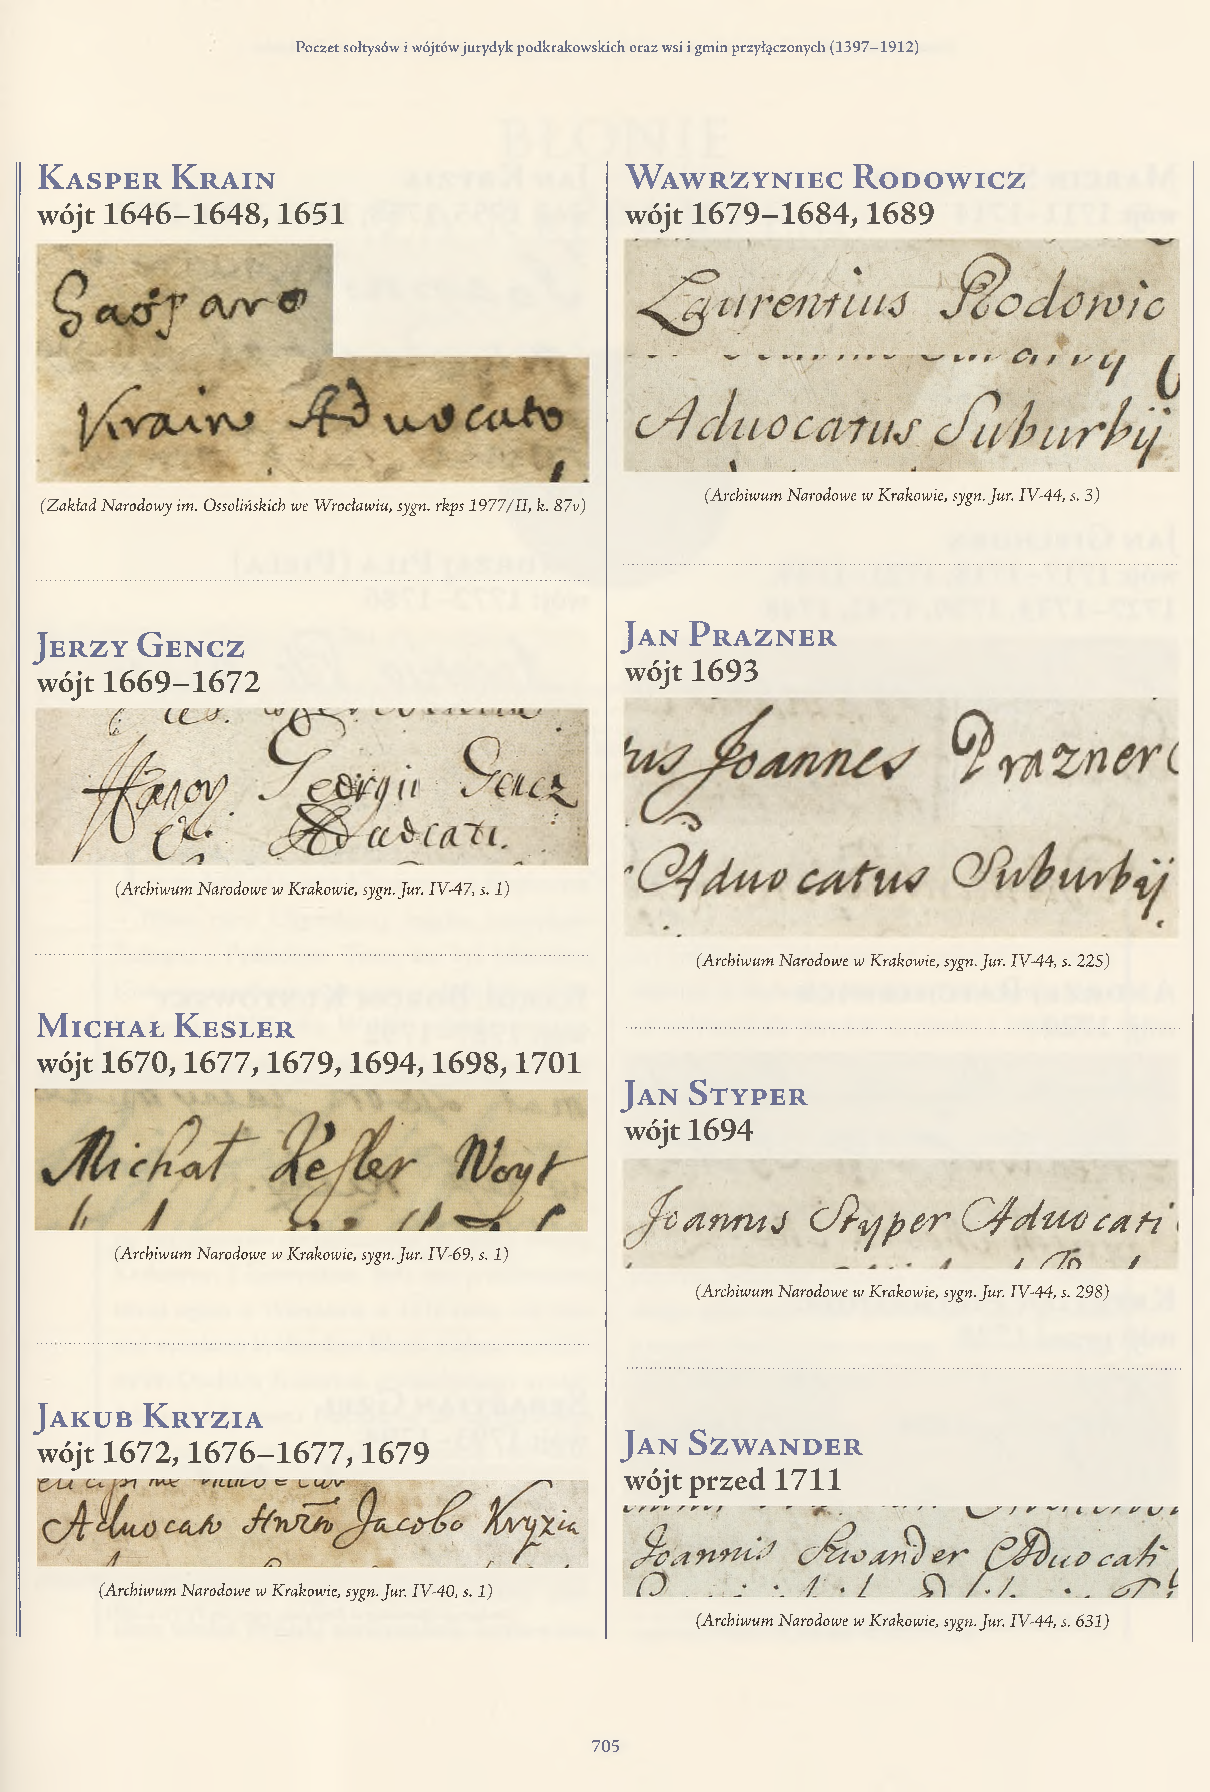 Poczet sołtysów i wójtów jurydyk podkrakowskich oraz wsi i gmin przyłączonych (1397–1912)
Kasper Krain
wójt 1646–1648, 1651
Gasparo
Krain Aduocato
(Zakład Narodowy im. Ossolińskich we Wrocławiu, sygn. rkps 1977/II, k. 87v)
Jerzy Gencz
wójt 1669–1672
Georgii Gencz
Aduocati.
(Archiwum Narodowe w Krakowie, sygn. Jur. IV-47, s. 1)
Michał Kesler
wójt 1670, 1677, 1679, 1694, 1698, 1701
Michał Kesler Woyt
(Archiwum Narodowe w Krakowie, sygn. Jur. IV-69, s. 1)
Jakub Kryzia
wójt 1672, 1676–1677, 1679
Aduocato Jacobo Kryzia
(Archiwum Narodowe w Krakowie, sygn. Jur. IV-40, s. 1)
Wawrzyniec Rodowicz
wójt 1679–1684, 1689
Laurentius Rodowic
Aduocatus Suburbij
(Archiwum Narodowe w Krakowie, sygn. Jur. IV-44, s. 3)
Jan Prazner
wójt 1693
Joannes Prazner
Aduocatus Suburbij
(Archiwum Narodowe w Krakowie, sygn. Jur. IV-44, s. 225)
Jan Styper
wójt 1694
Joannis Styper Aduocati
(Archiwum Narodowe w Krakowie, sygn. Jur. IV-44, s. 298)
Jan Szwander
wójt przed 1711
Joannis Szwander Aduocati
(Archiwum Narodowe w Krakowie, sygn. Jur. IV-44, s. 631)
705